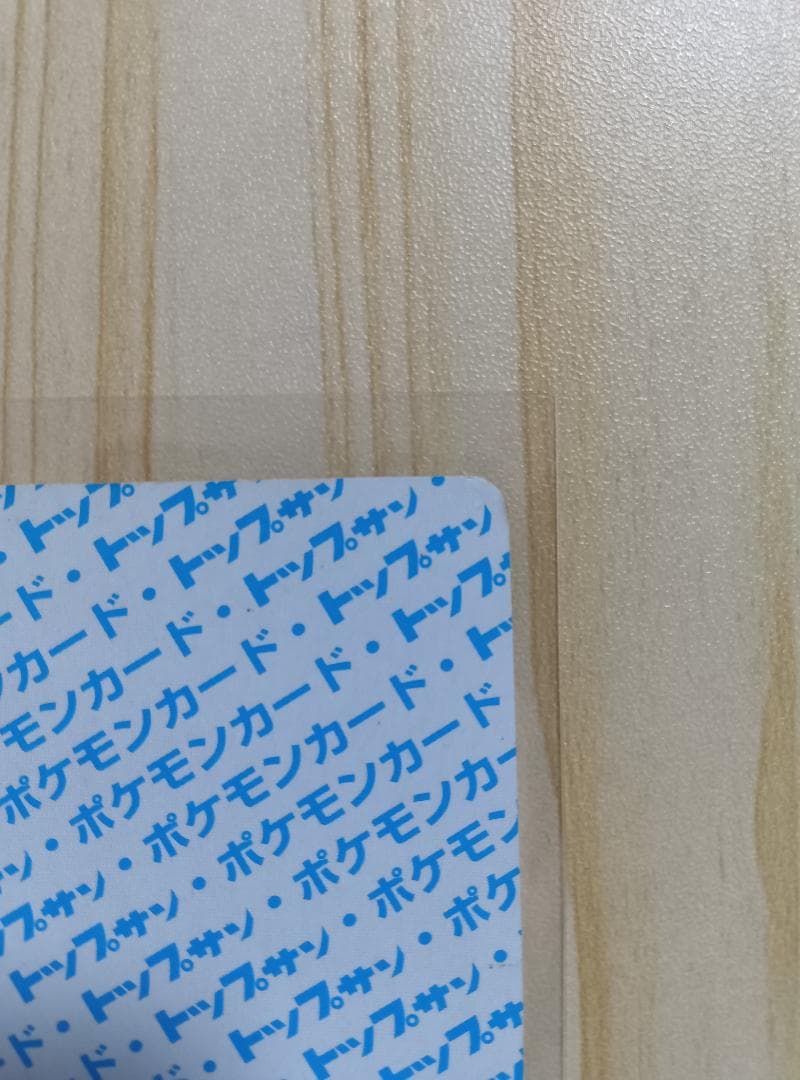 ・トップ
ード・トップサ
ンカード・トップサン
モンカード・トップサン・
ポケモンカード・トップサン
ン・ポケモンカード・トップ
プサン・ポケモンカード・トッ
トップサン・ポケモンカード
ード・トップサン・ポケモンカー
ド・トップサン・ポケモン
・トップサン・ポケ
トップサン・
ップサ